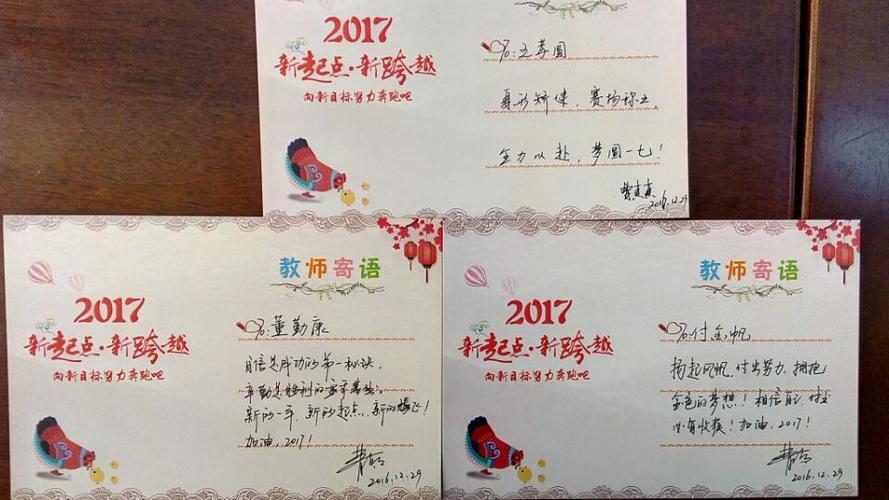 2017
新起点·新跨越
向新目标努力奔跑吧
To:王孝圆
身形矫健，赛场称王
全力以赴，梦圆一七！
2016.12.29
教师寄语
2017
新起点·新跨越
向新目标努力奔跑吧
To:董勤康
自信是成功的第一秘诀，
辛勤是胜利的
新的一年，新的起点，新的腾飞！
加油，2017！
2016.12.29
教师寄语
2017
新起点·新跨越
向新目标努力奔跑吧
To:付金帆
扬起风帆，付出努力，拥抱
金色的梦想！相信自己，付出
必有收获！加油，2017！
2016.12.29